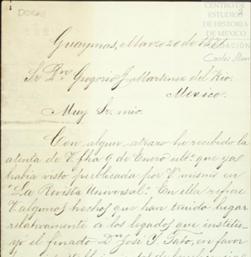 CENTRO DE
ESTUDIOS
DE HISTORIA
DE MEXICO
Guaymas, Marzo 20 de 187
Sr. Dn. Gregorio J. Martinez del Rio.
Mexico.
Muy Sr. mio.
Con algun atraso he recibido la
atenta de V. fha 9 de Enero ult.º que ya
habia visto publicada por V. mismo en
"La Revista Universal." En ella refiere
V. algunos hechos que han tenido lugar
relativamente á los legados que institu-
yó el finado Dn. José Y. en favor